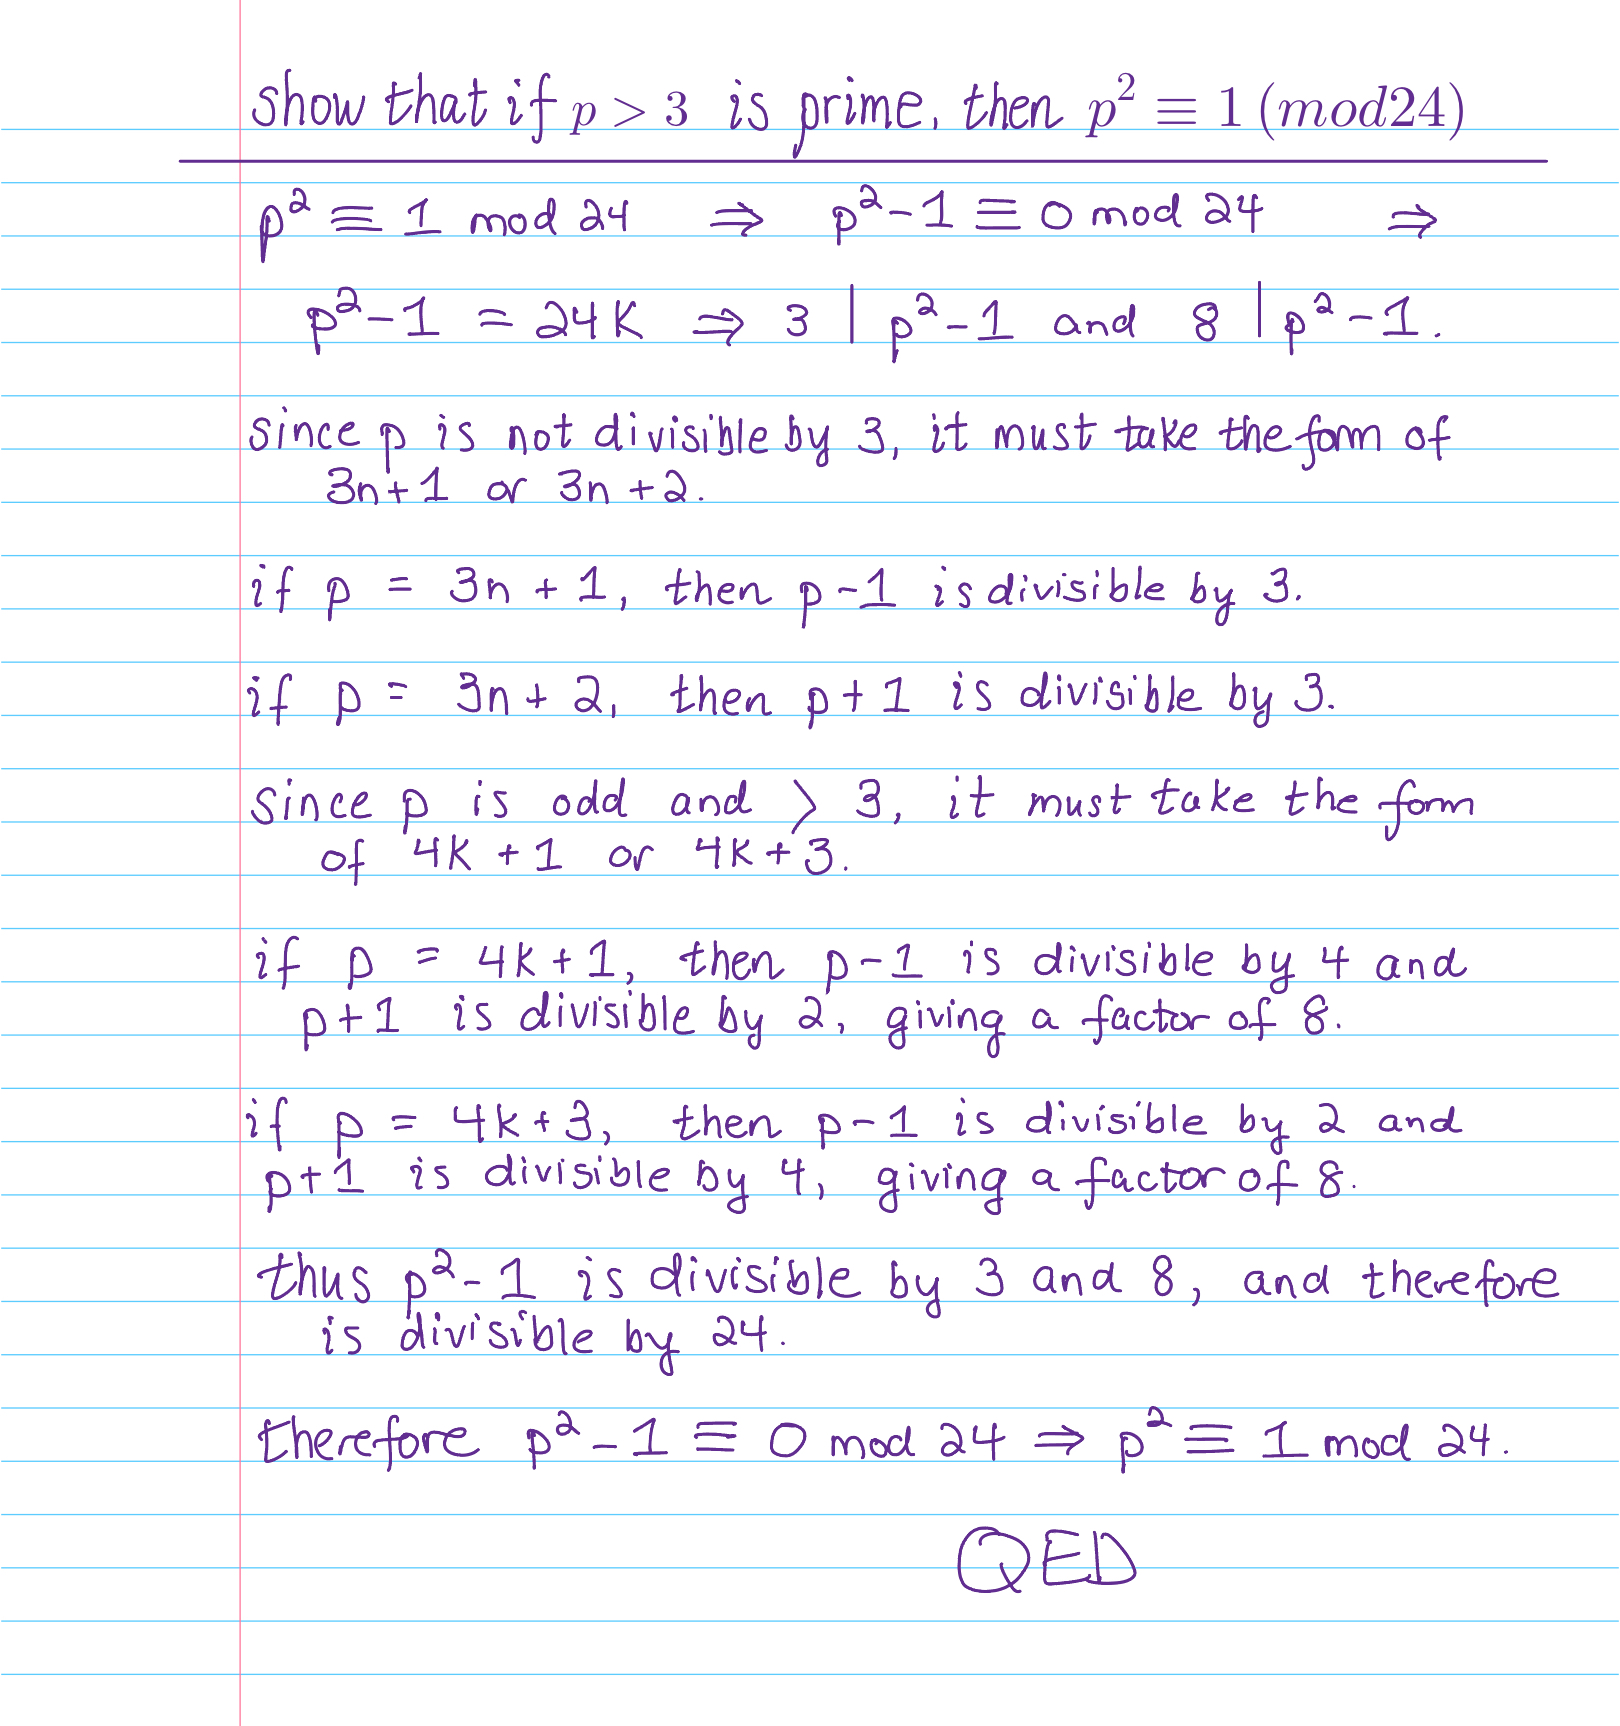 show that if p > 3 is prime, then p² ≡ 1 (mod24)
p² ≡ 1 mod 24 ⇒ p²-1 ≡ 0 mod 24 ⇒
p²-1 = 24K ⇒ 3 | p²-1 and 8 | p²-1.
since p is not divisible by 3, it must take the form of
3n+1 or 3n+2.
if p = 3n+1, then p-1 is divisible by 3.
if p = 3n+2, then p+1 is divisible by 3.
since p is odd and > 3, it must take the form
of 4k+1 or 4k+3.
if p = 4k+1, then p-1 is divisible by 4 and
p+1 is divisible by 2, giving a factor of 8.
if p = 4k+3, then p-1 is divisible by 2 and
p+1 is divisible by 4, giving a factor of 8.
thus p²-1 is divisible by 3 and 8, and therefore
is divisible by 24.
therefore p²-1 ≡ 0 mod 24 ⇒ p² ≡ 1 mod 24.
QED